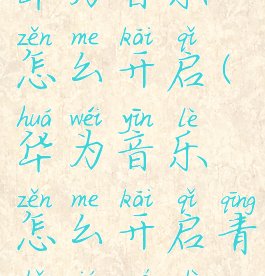 zěn me kāi qǐ
怎么开启(
huá wéi yīn lè
华为音乐
zěn me kāi qǐ qīng
怎么开启青